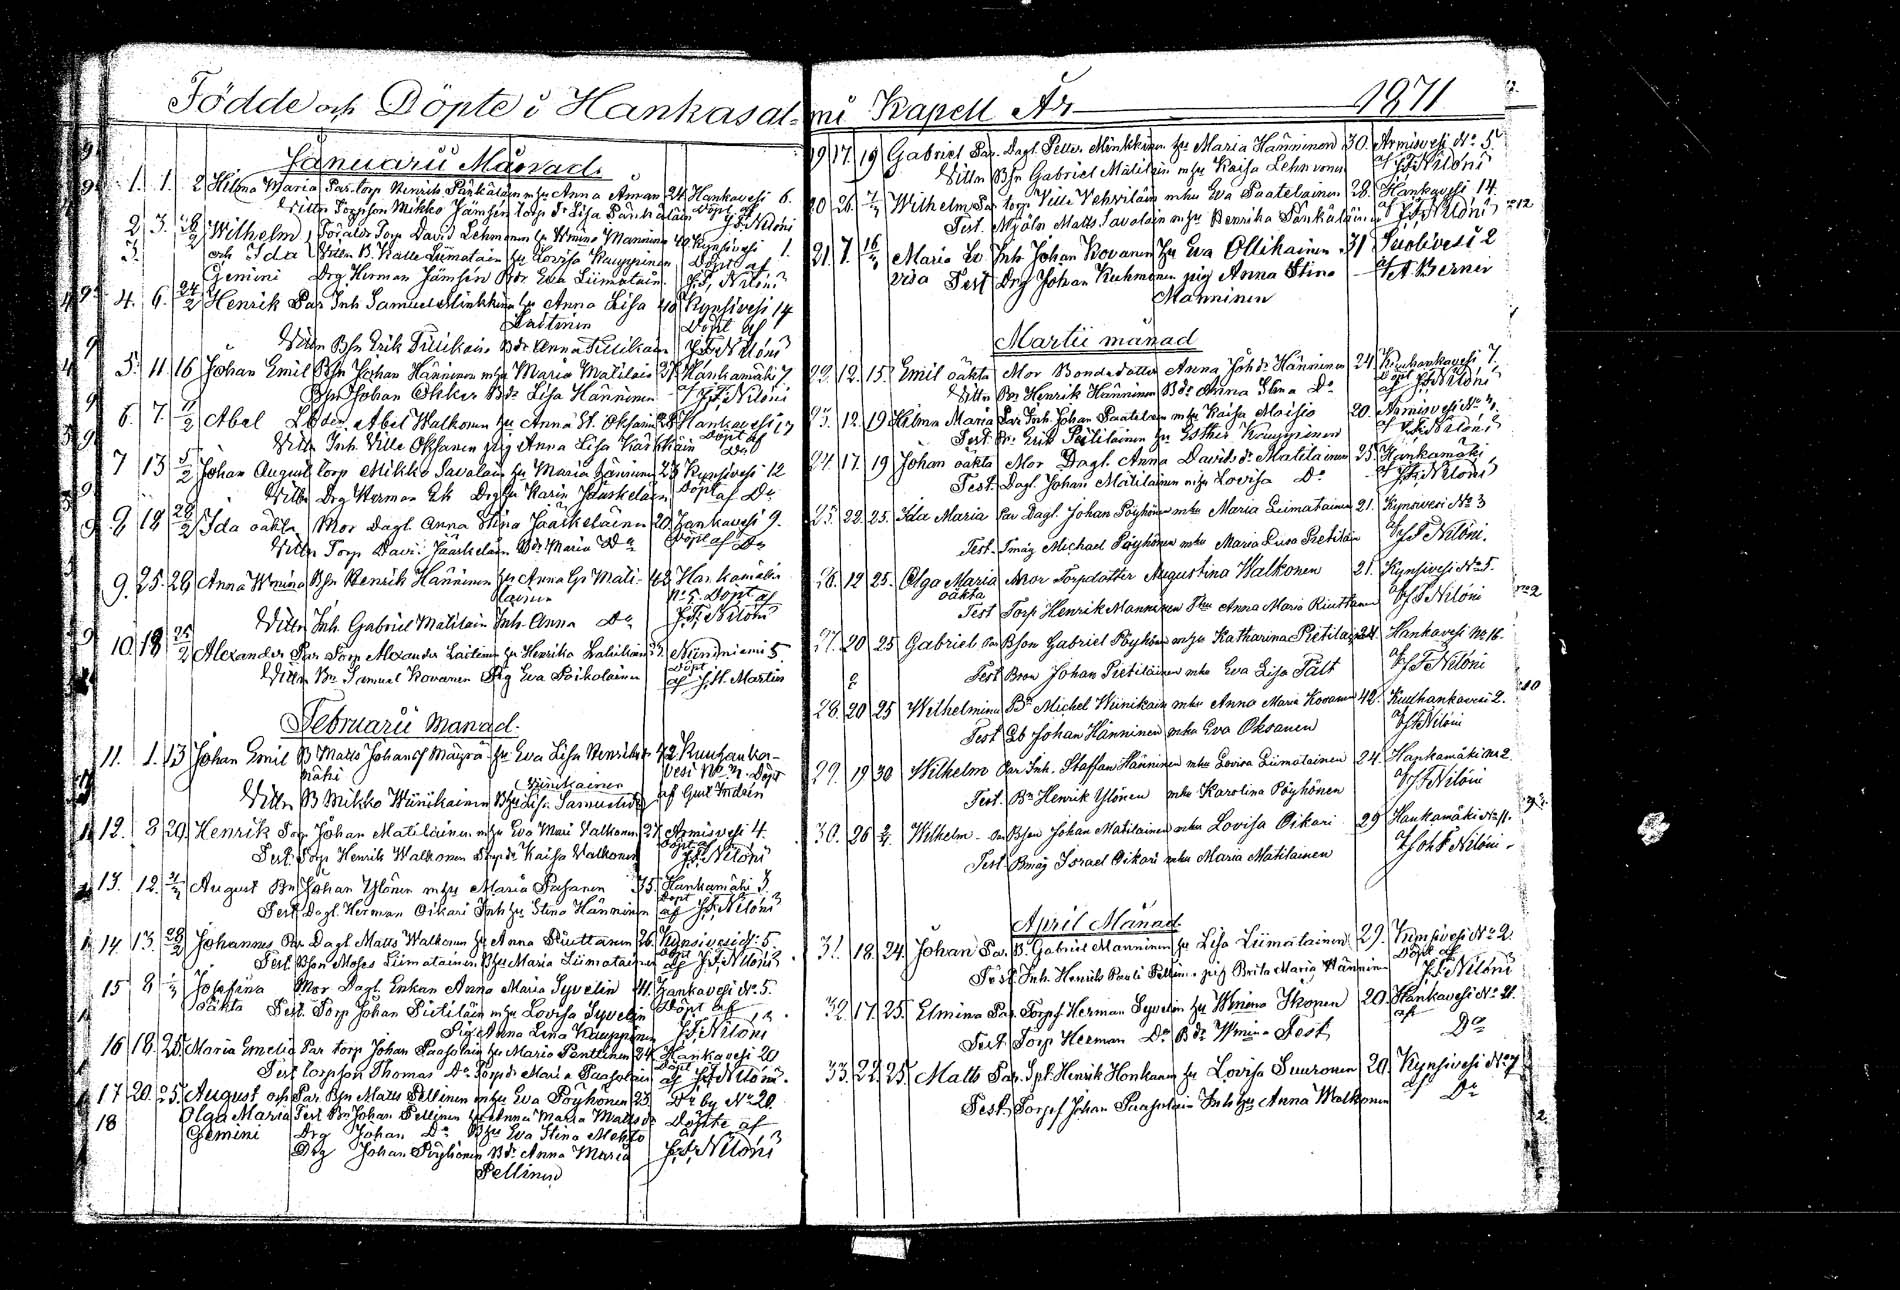 Födde och Döpte i Hankasal-
Januarii Månad.
1. 1. 2 Hilma Maria Par. torp Henrik Pänkäläin m hu Anna Åman 24 Hankavesi 6.
Vittn Torpson Mikko Jämsén torp dr Lisa Pänkäläin Döpt af J.F. Niloni
2. 3. 28/2 Wilhelm Föräldr Torp David Lehmonen hu Wmina Manninen 40 Kynsivesi 1.
3. och Ida Vittn B. Kalle Liimatain hu Lovisa Kauppinen Döpt af
Gemini Drg Herman Jämsén Bdr Eva Liimatain J.F. Niloni
4. 6. 24/2 Henrik Par Inh Samuel Minkkinen hu Anna Lisa 40 Kynsivesi 14
Laitinen Döpt af
Vittn Bsn Erik Tiiikain Bdr Anna Tiiikain J.F. Niloni
5. 11 16 Johan Emil Bsn Johan Hänninen m hu Maria Matilain 27. Hankamäki 7
Bsn Johan Bdr Lisa Hänninen af J.F. Niloni
6. 7. 11/2 Abel Abel Walkonen hu Anna St. Oksanen 28 Hankavesi 17
Vittn Inh. Ville Oksanen pig Anna Lisa Kärkkäin Döpt af Do
7 13 5/2 Johan August torp Mikko Savolain hu Maria Hänninen 23 Kynsivesi 12
Vittn Drg Herman Ek Drg hu Karin Jääskeläin Döpt af Do
8 18 28/2 Ida oäkta Mor Dagl. Anna Stina Jääskeläinen 20. Hankavesi 9.
Vittn Torp David Jääskeläin Bdr Maria Do Döpt af Do
9. 25. 28 Anna Wmina Bsn Henrik Hänninen hu Anna Ls Mati- 42 Hankamäki
lainen No 5. Döpt af
Vittn Inh. Gabriel Matilain Inh. Anna Do J.F. Niloni
10. 18 25/2 Alexander Par Torp Alexander Laitinen hu Henrika Niininiemi 5
Vittn Bn Samuel Kovanen Pig Eva Poikolainen Döpt af J.H. Martin
Februarii Månad.
11. 1. 13 Johan Emil B Matts Johansf Mäyrä- hu Eva Lisa Henriksdr 42 Kuuhanka-
mäki Wiinikainen vesi No Döpt
Vittn B Mikko Wiinikainen Bhu Lisa Samuelsdr af
12. 8 20. Henrik Torp Johan Matilainen m hu Eva Mari Valkonen 27. Armisvesi 4.
Test. Torp Henrik Walkonen Torp dr Kaisa Valkonen Döpt af J.F. Niloni
13. 12. August Bn Johan Ylönen m hu Maria Pasanen 35. Hankamäki 3.
Test Dagl. Herman Oikari Inh hu Stina Hänninen Döpt af J.F. Niloni
14. 13. 28/2 Johannes Par Dagl Matts Walkonen hu Anna Riuttanen 26. Kynsivesi No 5.
Test. Bson Moses Liimatainen Bhu Maria Liimatainen Döpt af J.F. Niloni
15 8 1/3 Josefina Mor Dagl. Enkan Anna Maria Syvelin 41. Hankavesi No 5.
oäkta Test. Torp Johan Pietiläin m hu Lovisa Syvelin Döpt af
Pig Anna Lena Kauppinen J.F. Niloni
16 18. 25. Maria Emelia Par torp Johan Paasolain hu Maria Penttinen 24 Hankavesi 20
Test torpson Thomas Do Torp dr Maria Paasolain Döpt af J.F. Niloni.
17 20. 25. August och Par Bsn Matts Pellinen m hu Eva Pöyhönen 23. Do by No 20.
18 Olga Maria Test Bn Johan Pellinen hu Anna Maria Mattsdr Döpte af
Gemini Drg Johan Do Bhu Eva Stina Mehto J.F. Niloni
Drg Johan Pöyhönen Bdr Anna Maria
Pellinen
mi Kapell År 1871
19 17. 19 Gabriel Par. Dagl. Petter Minkkinen hu Maria Hänninen 30. Armisvesi No 5.
Vittn Bsn Gabriel Mätilain m hu Kaisa Lehmonen af J.F. Niloni
20 26. Wilhelm Par torp Ville Vehviläin m hu Eva Paatelainen 28. Hankavesi 14.
Test. Mjöln Matts Savolain m hu Henrika Pänkäläinen af J.F. Niloni
21. 7. 16/3 Maria Lo- Inh Johan Kovanen hu Eva Ollikainen 31 Suolivesi 2
visa Test Drg Johan Kuhmonen pig Anna Stina af A Berner
Manninen
Martii månad
22. 12. 15. Emil oäkta Mor Bondedotter Anna Joh dr Hänninen 24. Kuuhankavesi 7.
Vittn Bn Henrik Hänninen Bdr Anna Stina Do Döpt af J.F. Niloni
23. 12. 19 Hilma Maria Par Inh. Johan Paatelain m hu Kaisa Moisio 20. Armisvesi No
Test. Bn Erik Pietiläinen hu Esther Kauppinen af J.F. Niloni
24. 17. 19 Johan oäkta Mor Dagl. Anna Davids dr Matilainen 25. Hankamäki
Test. Dagl. Johan Mätilainen m hu Lovisa Do af J.F. Niloni
25. 22. 25. Ida Maria Par Dagl. Johan Pöyhönen m hu Maria Liimatainen 21. Kynsivesi No 3
Test. Tmåg Michael Pöyhönen m hu Maria Lusa Pietiläin af J F Niloni.
26. 12 25. Olga Maria Mor Torpdotter Augustina Walkonen 21. Kynsivesi No 5.
oäkta
Test Torp. Henrik Manninen Thu Anna Maria Riuttanen af J F Niloni
27. 20 25 Gabriel Par Bson Gabriel Pöyhönen m hu Katharina Pietiläin 24. Hankavesi No 16.
Test Bson Johan Pietiläinen m hu Eva Lisa Fält af J F Niloni
28. 20 25 Wilhelmina Bn Michel Wiinikain m hu Anna Maria Kovanen 42. Kuuhankavesi 2.
Test Lb Johan Hänninen m hu Eva Oksanen af J F Niloni
29. 19 30 Wilhelm Par Inh. Staffan Hänninen m hu Lovisa Liimatainen 24. Hankamäki No 2.
Test. Bn Henrik Ylönen m hu Karolina Pöyhönen af J F Niloni
30. 26 2/4 Wilhelm Par Bson Johan Matilainen m hu Lovisa Oikari 29 Hankamäki No 11.
Test Bmåg Israel Oikari m hu Maria Matilainen af Joh F Niloni
April Månad.
31. 18. 24. Johan Par. B. Gabriel Manninen hu Lisa Liimatainen 29. Kynsivesi No 2.
Test. Inh. Henrik Pauli Pellin- pig Brita Maria Hänninen Döpt af J.F. Niloni
32. 17. 25. Elmina Par. Torpf Herman Syvelin hu Wmina Ikonen 20. Hankavesi No 21.
Test Torp Herman Do Bdr Wmina Test af Do
33. 22. 25. Matts Par. Spt. Henrik Honkanen hu Lovisa Suuronen 20. Kynsivesi No 7
Test. Torpf Johan Paasolain Inh hu Anna Walkonen af Do